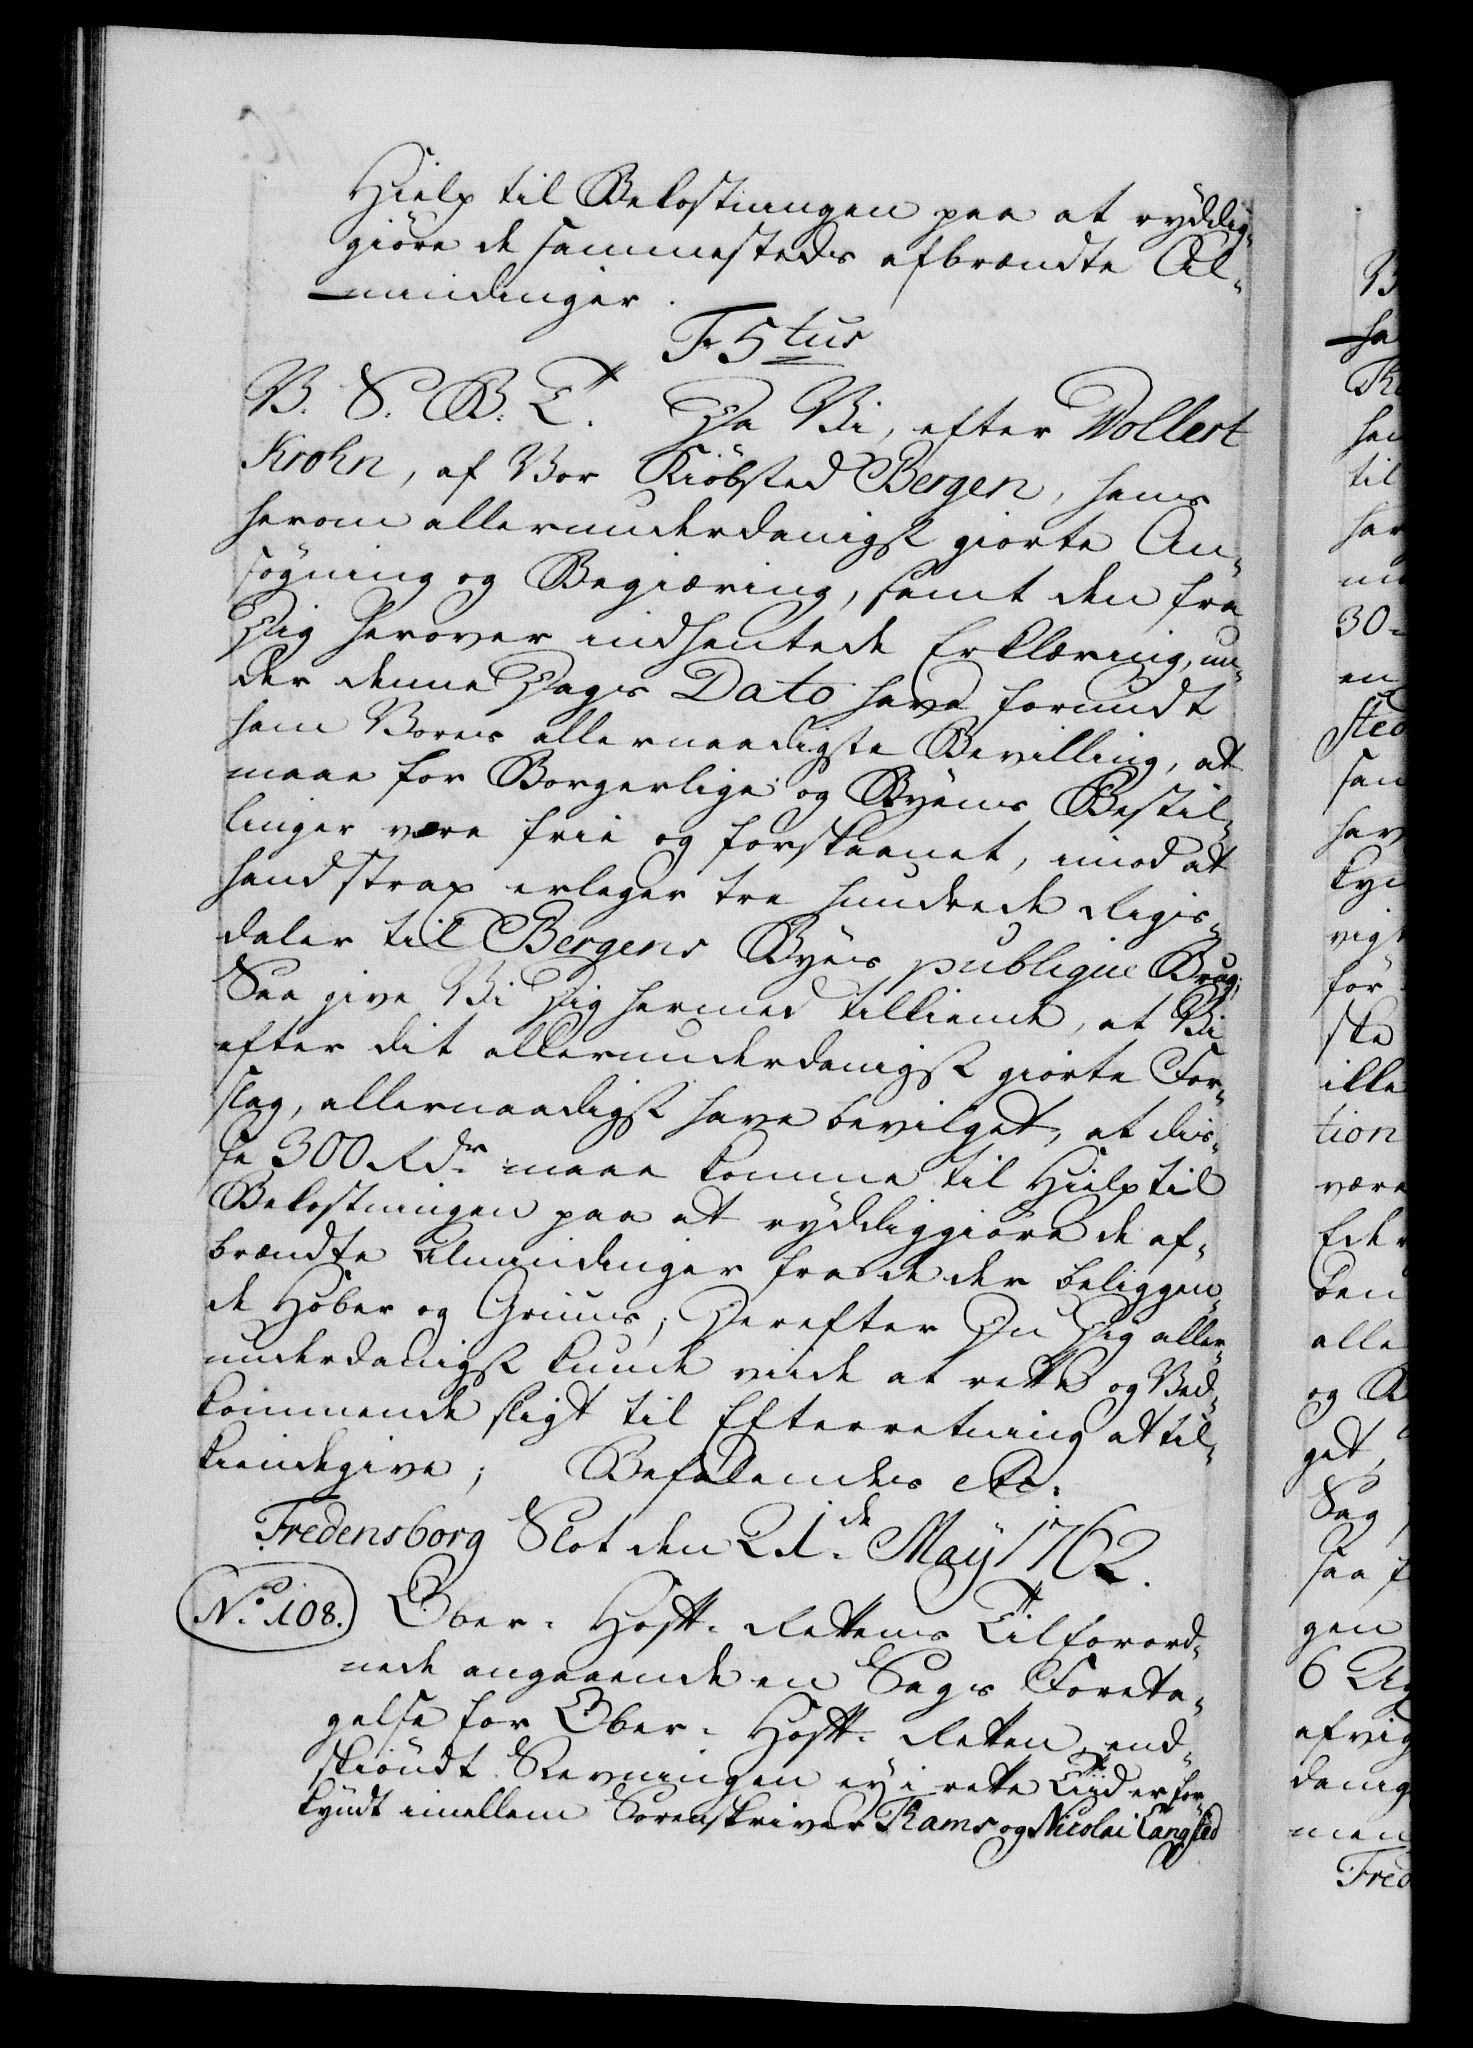 Hielp til Bekostningen paa at ryddig-
giöre de sammesteds afbrændte Al-
mindinger.
Fr 5tus
V. S. G. T. Da Vi, efter Wollert
Krohn, af Vor Kiöbsted Bergen, hans
herom allerunderdanigst giorte An-
søgning og Begiæring, samt den fra
Dig herover indhentede Erklæring, un-
der denne Dags Dato have forundt
ham Vores allernaadigste Bevilling, at
maae for Borgerlige og Byens Bestil-
linger være frie og forskaanet, imod at
hand strax erlegger tre hundrede Rigs-
daler til Bergens Byes publique Brug;
Saa give Vi Dig hermed tilkiende, at Vi
efter dit allerunderdanigst giorte For-
slag, allernaadigst have bevilget, at dis-
se 300 Rdr maae komme til Hielp til
Bekostningen paa at ryddiggiöre de af-
brændte Almindinger fra de der beliggen-
de Hober og Gruus; Derefter Du Dig aller-
underdanigst kunde viide at rette og Ved-
kommende sligt til Efterretning at til-
kiendegive; Befalendes etc.
Fredensborg Slot den 21de May 1762.
No 108. Ober-Hoff-Rettens Tilforord-
nede angaaende en Sags Foreta-
gelse for Ober-Hoff-Retten, end-
skiöndt Stevningen ey i rette Tiid er for-
kyndt imellem Sorenskriver Rams og Nicolai Langsted
30-
en
Sted
til
ske
ille
tion
være
alle
og
get,
Sag
saa
gen
6
men
Fred